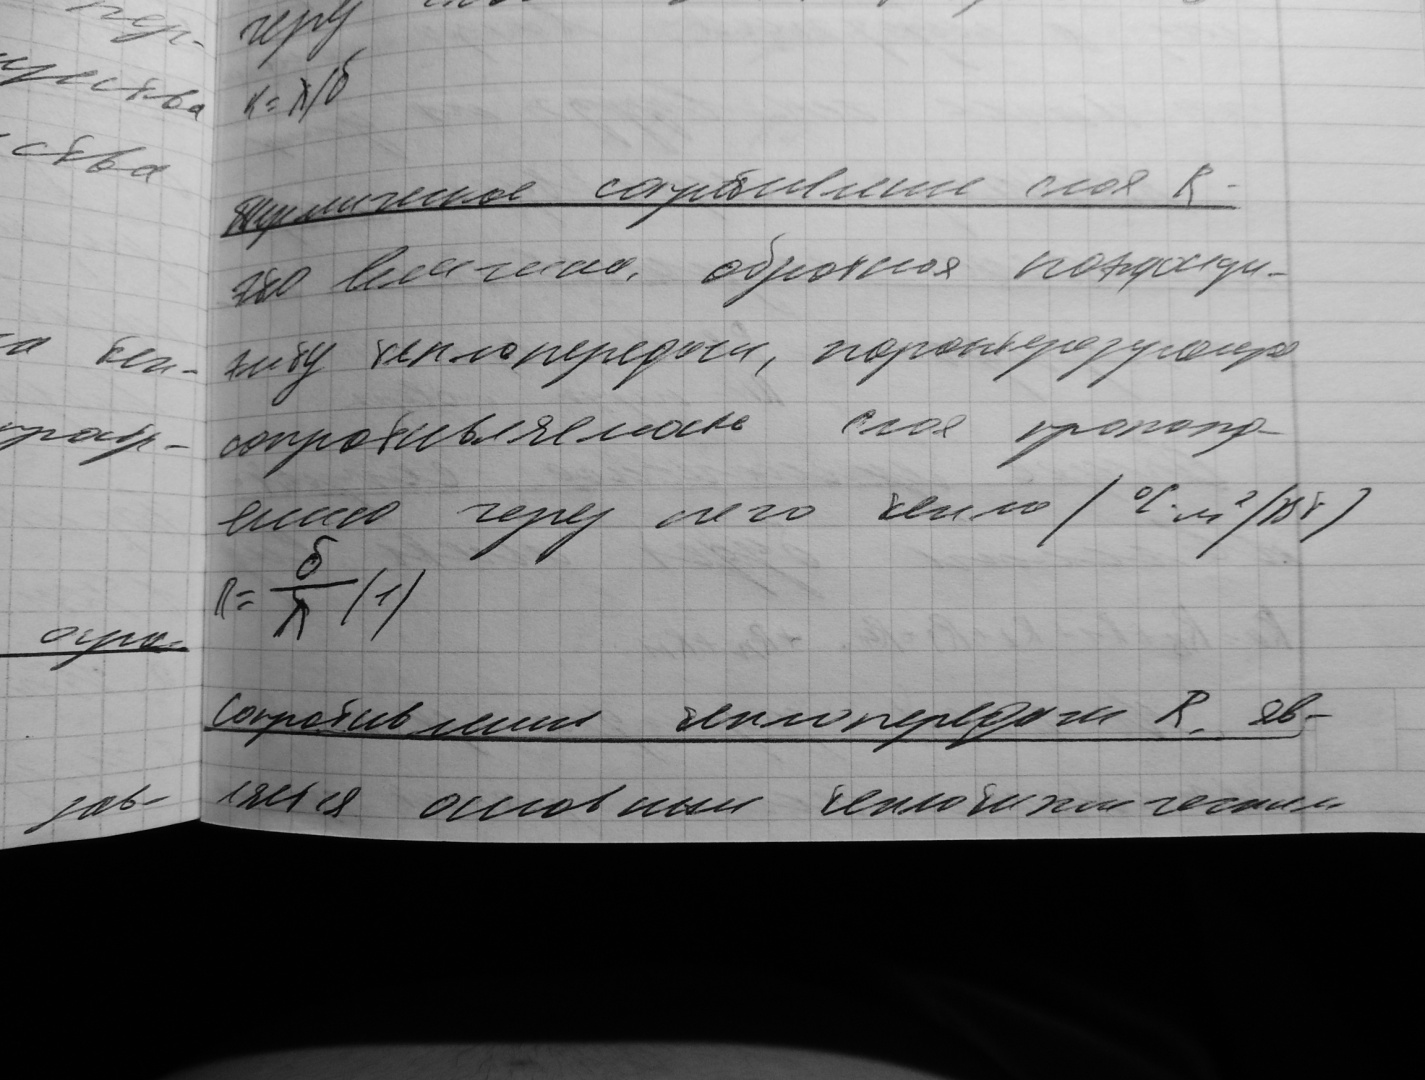 пер-
щества
ства
на теп-
огра-
зав-
через
к=λ/δ
Термическое сопротивление слоя R-
это величина, обратная коэффици-
енту теплопередачи, характеризующая
сопротивляемость слоя прохож-
ению через него тепло (°С·м²/Вт)
R= δ/λ (1)
Сопротивление теплопередачи R. яв-
ляется основным теплотехническим